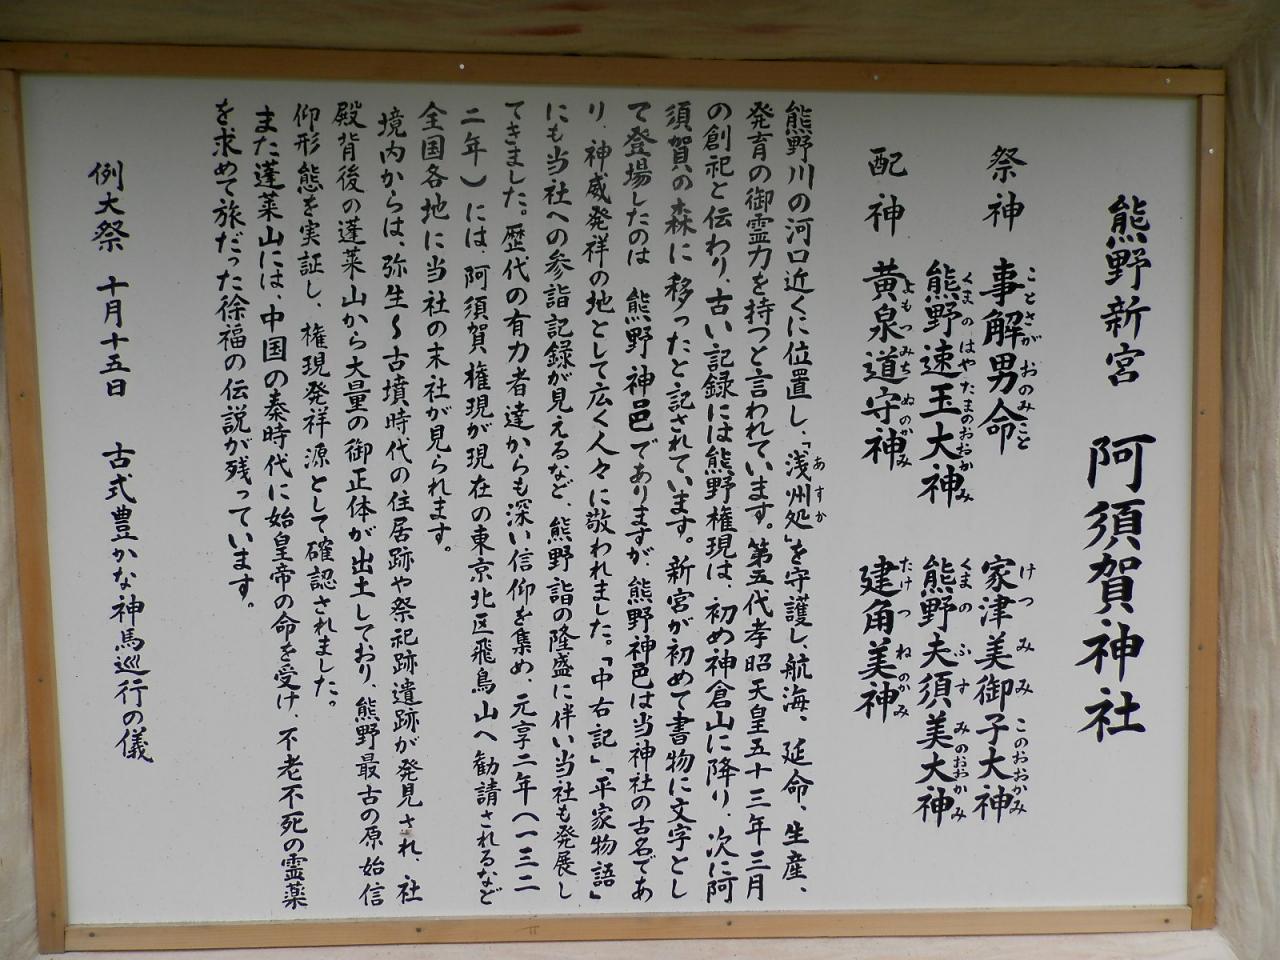 熊野新宮 阿須賀神社
祭神 事解男命 家津美御子大神
ことさか おのみこと けつみみこのおおかみ
熊野速玉大神 熊野夫須美大神
くまのはやたまのおおかみ くまのふすみのおおかみ
配神 黄泉道守神 建角美神
よもつみちぬのかみ たけつねのかみ
熊野川の河口近くに位置し、「浅州処」を守護し、航海、延命、生産、
あすか
発育の御霊力を持つと言われています。第五代孝昭天皇五十三年三月
の創祀と伝わり、古い記録には熊野権現は、初め神倉山に降り、次に阿
須賀の森に移ったと記されています。新宮が初めて書物に文字とし
て登場したのは 熊野神邑でありますが、熊野神邑は当神社の古名であ
り、神威発祥の地として広く人々に敬われました。「中右記」「平家物語」
にも当社への参詣記録が見えるなど、熊野詣の隆盛に伴い当社も発展し
てきました。歴代の有力者達からも深い信仰を集め、元享二年(一三二
二年)には、阿須賀権現が現在の東京北区飛鳥山へ勧請されるなど
全国各地に当社の末社が見られます。
境内からは、弥生～古墳時代の住居跡や祭祀跡遺跡が発見され、社
殿背後の蓬莱山から大量の御正体が出土しており、熊野最古の原始信
仰形態を実証し、権現発祥源として確認されました。
また蓬莱山には、中国の秦時代に始皇帝の命を受け、不老不死の霊薬
を求めて旅だった徐福の伝説が残っています。
例大祭 十月十五日 古式豊かな神馬巡行の儀